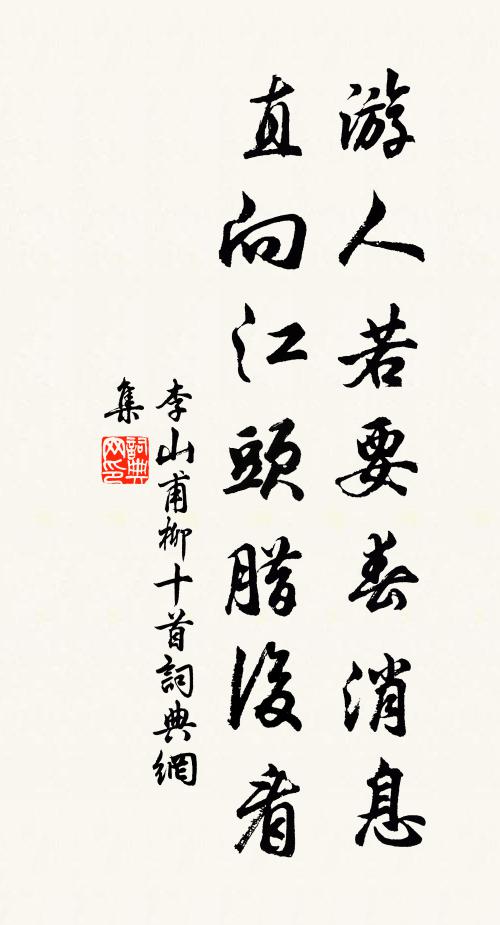 游人若要春消息
直向江頭腊後看
李山甫柳十首詞典網
集
詞典
网印